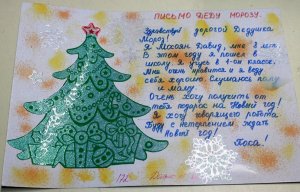 ПИСЬМО ДЕДУ МОРОЗУ.
Здравствуй дорогой Дедушка
Мороз!
Я Мхоян Давид, мне 7 лет.
В этом году я пошел в
школу. Я учусь в 1-ом классе.
Мне очень нравится и я веду
себя хорошо. Слушаюсь папу
и маму.
Очень хочу получить от
тебя подарок на Новый год!
Я хочу говорящего робота.
Буду с нетерпением ждать
Новый год!
Пока!